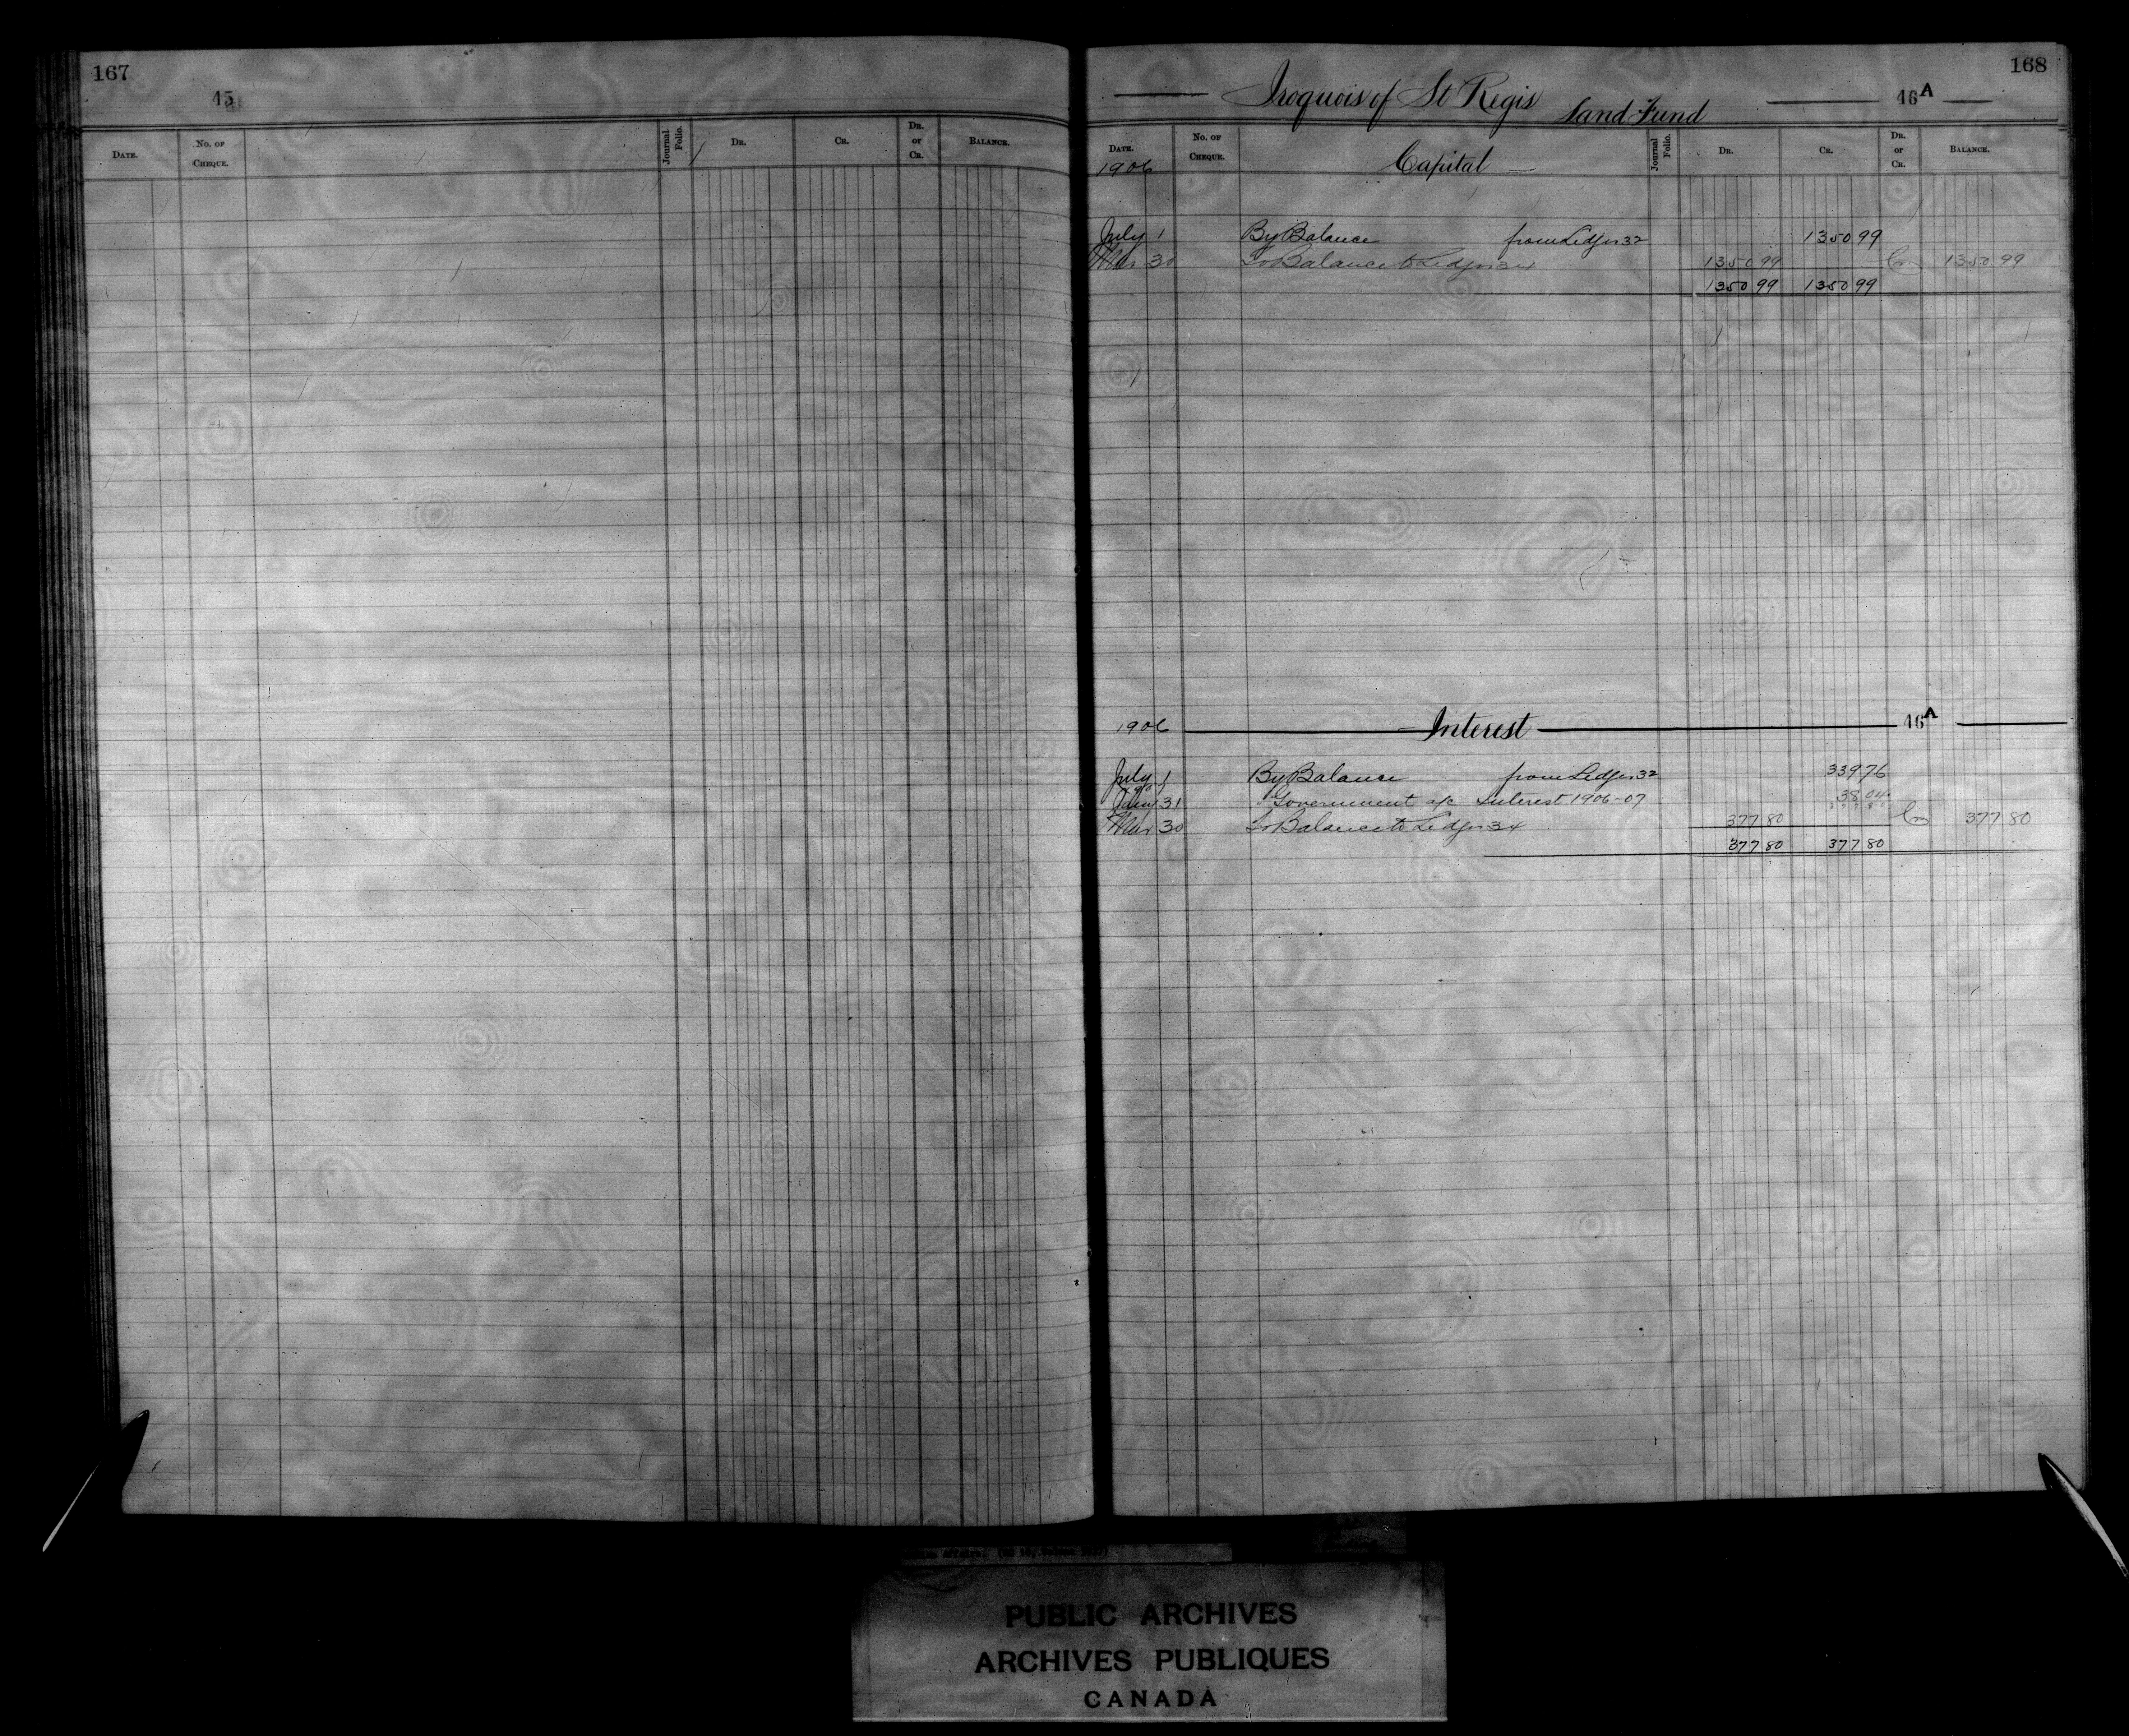 167
45
DATE. No. OF CHEQUE. Journal Folio. DR. CR. DR. or CR. BALANCE.
168
Iroquois of St Regis Land Fund 46A
DATE. No. OF CHEQUE. Capital Journal Folio. DR. CR. DR. or CR. BALANCE.
1906
July 1 By Balance from Ledger 32 1350 99
Mar 30 To Balance to Ledger 34 1350 99 Cr 1350 99
1350 99 1350 99
1906 Interest 46A
July 1 By Balance from Ledger 32 339 76
31 " Government a/c Interest 1906-07 38 04
Mar 30 To Balance to Ledger 34 377 80 Cr 377 80
377 80 377 80
PUBLIC ARCHIVES
ARCHIVES PUBLIQUES
CANADA